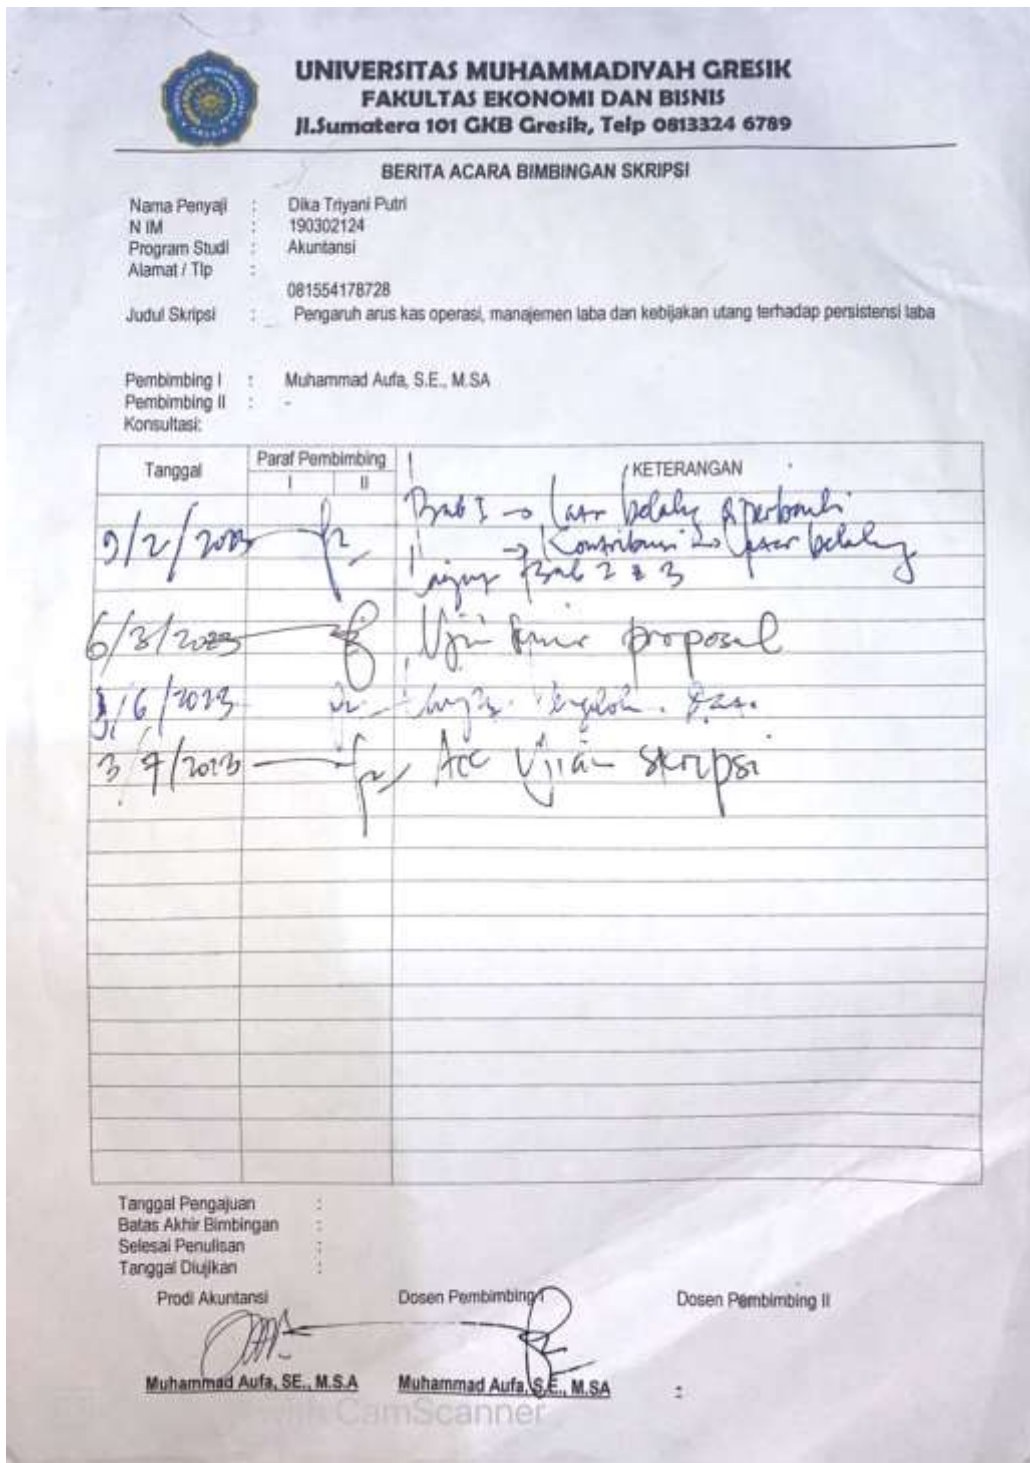 UNIVERSITAS MUHAMMADIYAH GRESIK
FAKULTAS EKONOMI DAN BISNIS
Jl.Sumatera 101 GKB Gresik, Telp 0813324 6789
BERITA ACARA BIMBINGAN SKRIPSI
Nama Penyaji : Dika Triyani Putri
N IM : 190302124
Program Studi : Akuntansi
Alamat / Tlp :
081554178728
Judul Skripsi : Pengaruh arus kas operasi, manajemen laba dan kebijakan utang terhadap persistensi laba
Pembimbing I : Muhammad Aufa, S.E., M.SA
Pembimbing II : -
Konsultasi:
Tanggal Paraf Pembimbing KETERANGAN
I II
9/2/2023 Bab I → latar belakang
→ Kontribusi → latar belakang
Bab 2 & 3
6/3/2023 Ujian proposal
/6/2023
3/7/2023 Acc Ujian Skripsi
Tanggal Pengajuan :
Batas Akhir Bimbingan :
Selesai Penulisan :
Tanggal Diujikan :
Prodi Akuntansi Dosen Pembimbing I Dosen Pembimbing II
Muhammad Aufa, SE., M.S.A Muhammad Aufa, S.E., M.SA :
with CamScanner